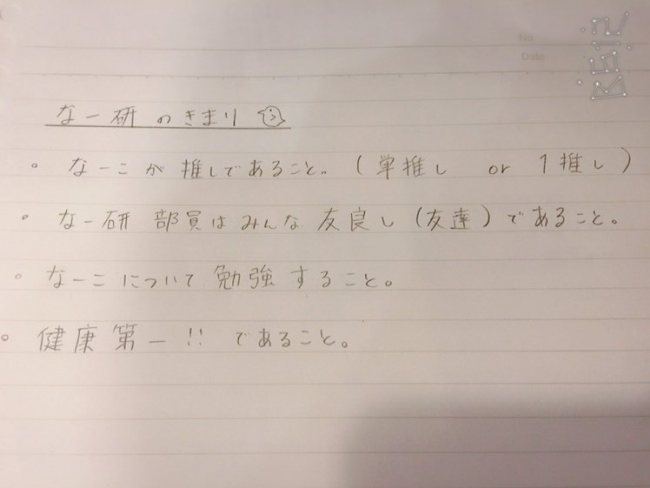 No.
Date
なー研のきまり
・なーこが推しであること。(単推し or 1推し)
・なー研部員はみんな友良し(友達)であること。
・なーこについて勉強すること。
・健康第一!!であること。